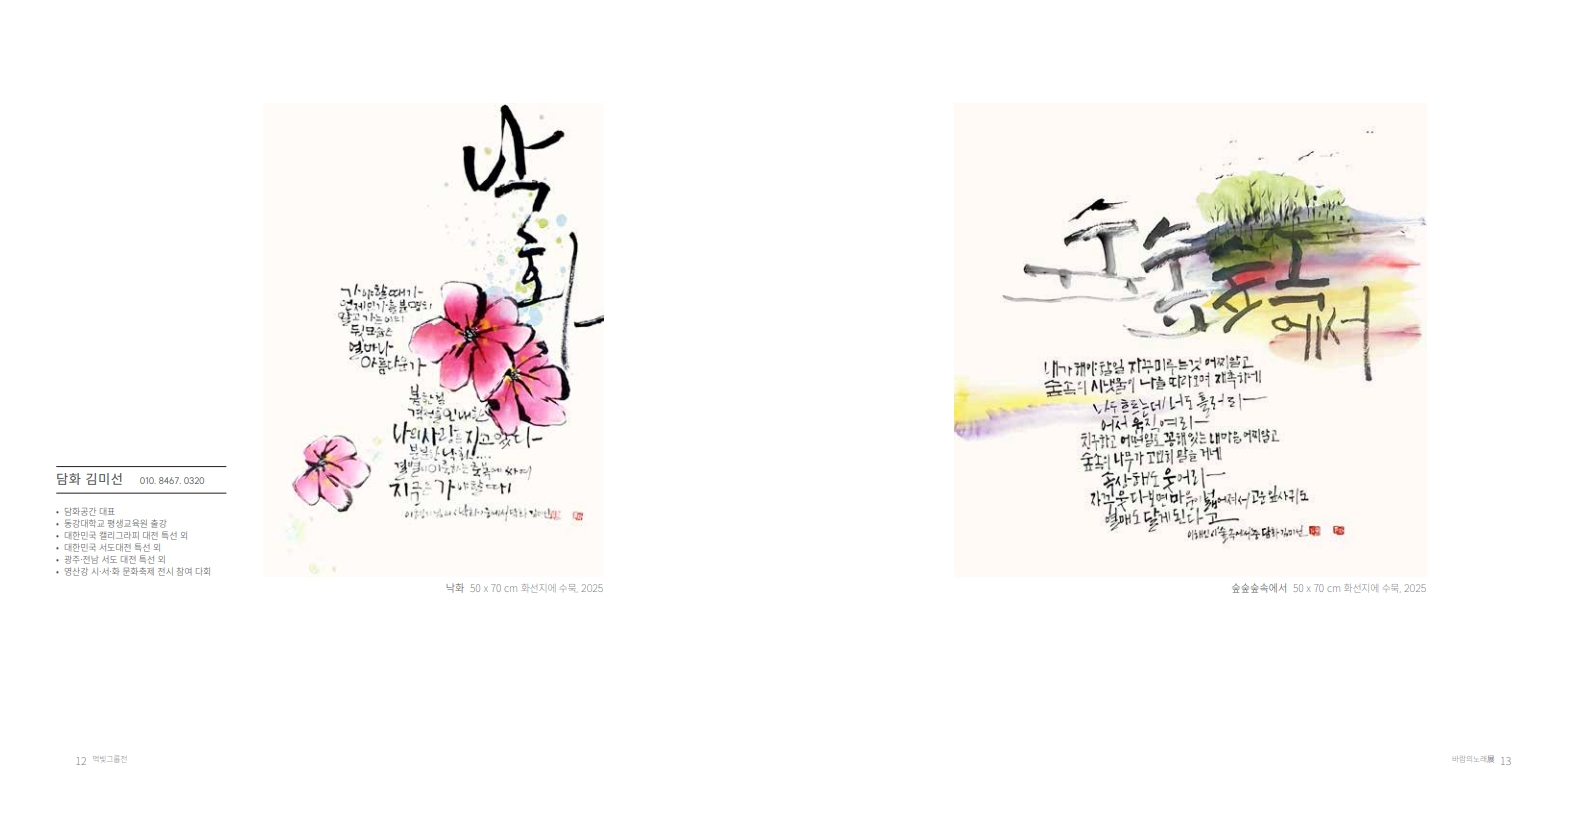 담화 김미선 010. 8467. 0320
• 담화공간 대표
• 동강대학교 평생교육원 출강
• 대한민국 캘리그라피 대전 특선 외
• 대한민국 서도대전 특선 외
• 광주·전남 서도 대전 특선 외
• 영산강 시·서·화 문화축제 전시 참여 다회
낙
화
가야할 때가
언제인가를 분명히
알고 가는 이의
뒷모습은
얼마나
아름다운가
봄 한철
격정을 인내한
나의 사랑은 지고 있다
분분한 낙화....
결별이 이룩하는 축복에 싸여
지금은 가야할 때
이형기님의 시 낙화 중에서 담화 김미선
낙화 50 x 70 cm 화선지에 수묵, 2025
숲숲숲속
에서
내가 해야 할일 자꾸 미루는 것 어찌 알고
숲속의 시냇물이 나를 따라오며 재촉하네
나도 흐르는데 너도 흘러라
어서 움직여라
친구하고 어떤일로 꽁해 있는 내마음 어찌알고
숲속의 나무가 고요히 말을 거네
속상해도 웃어라
자꾸 웃다보면 마음이 넓어져서 고운 잎사귀도
열매도 달게 된다고
이해인 시 숲속에서 중 담화 김미선
숲숲숲속에서 50 x 70 cm 화선지에 수묵, 2025
12 먹빛그룹전
바람의노래展 13